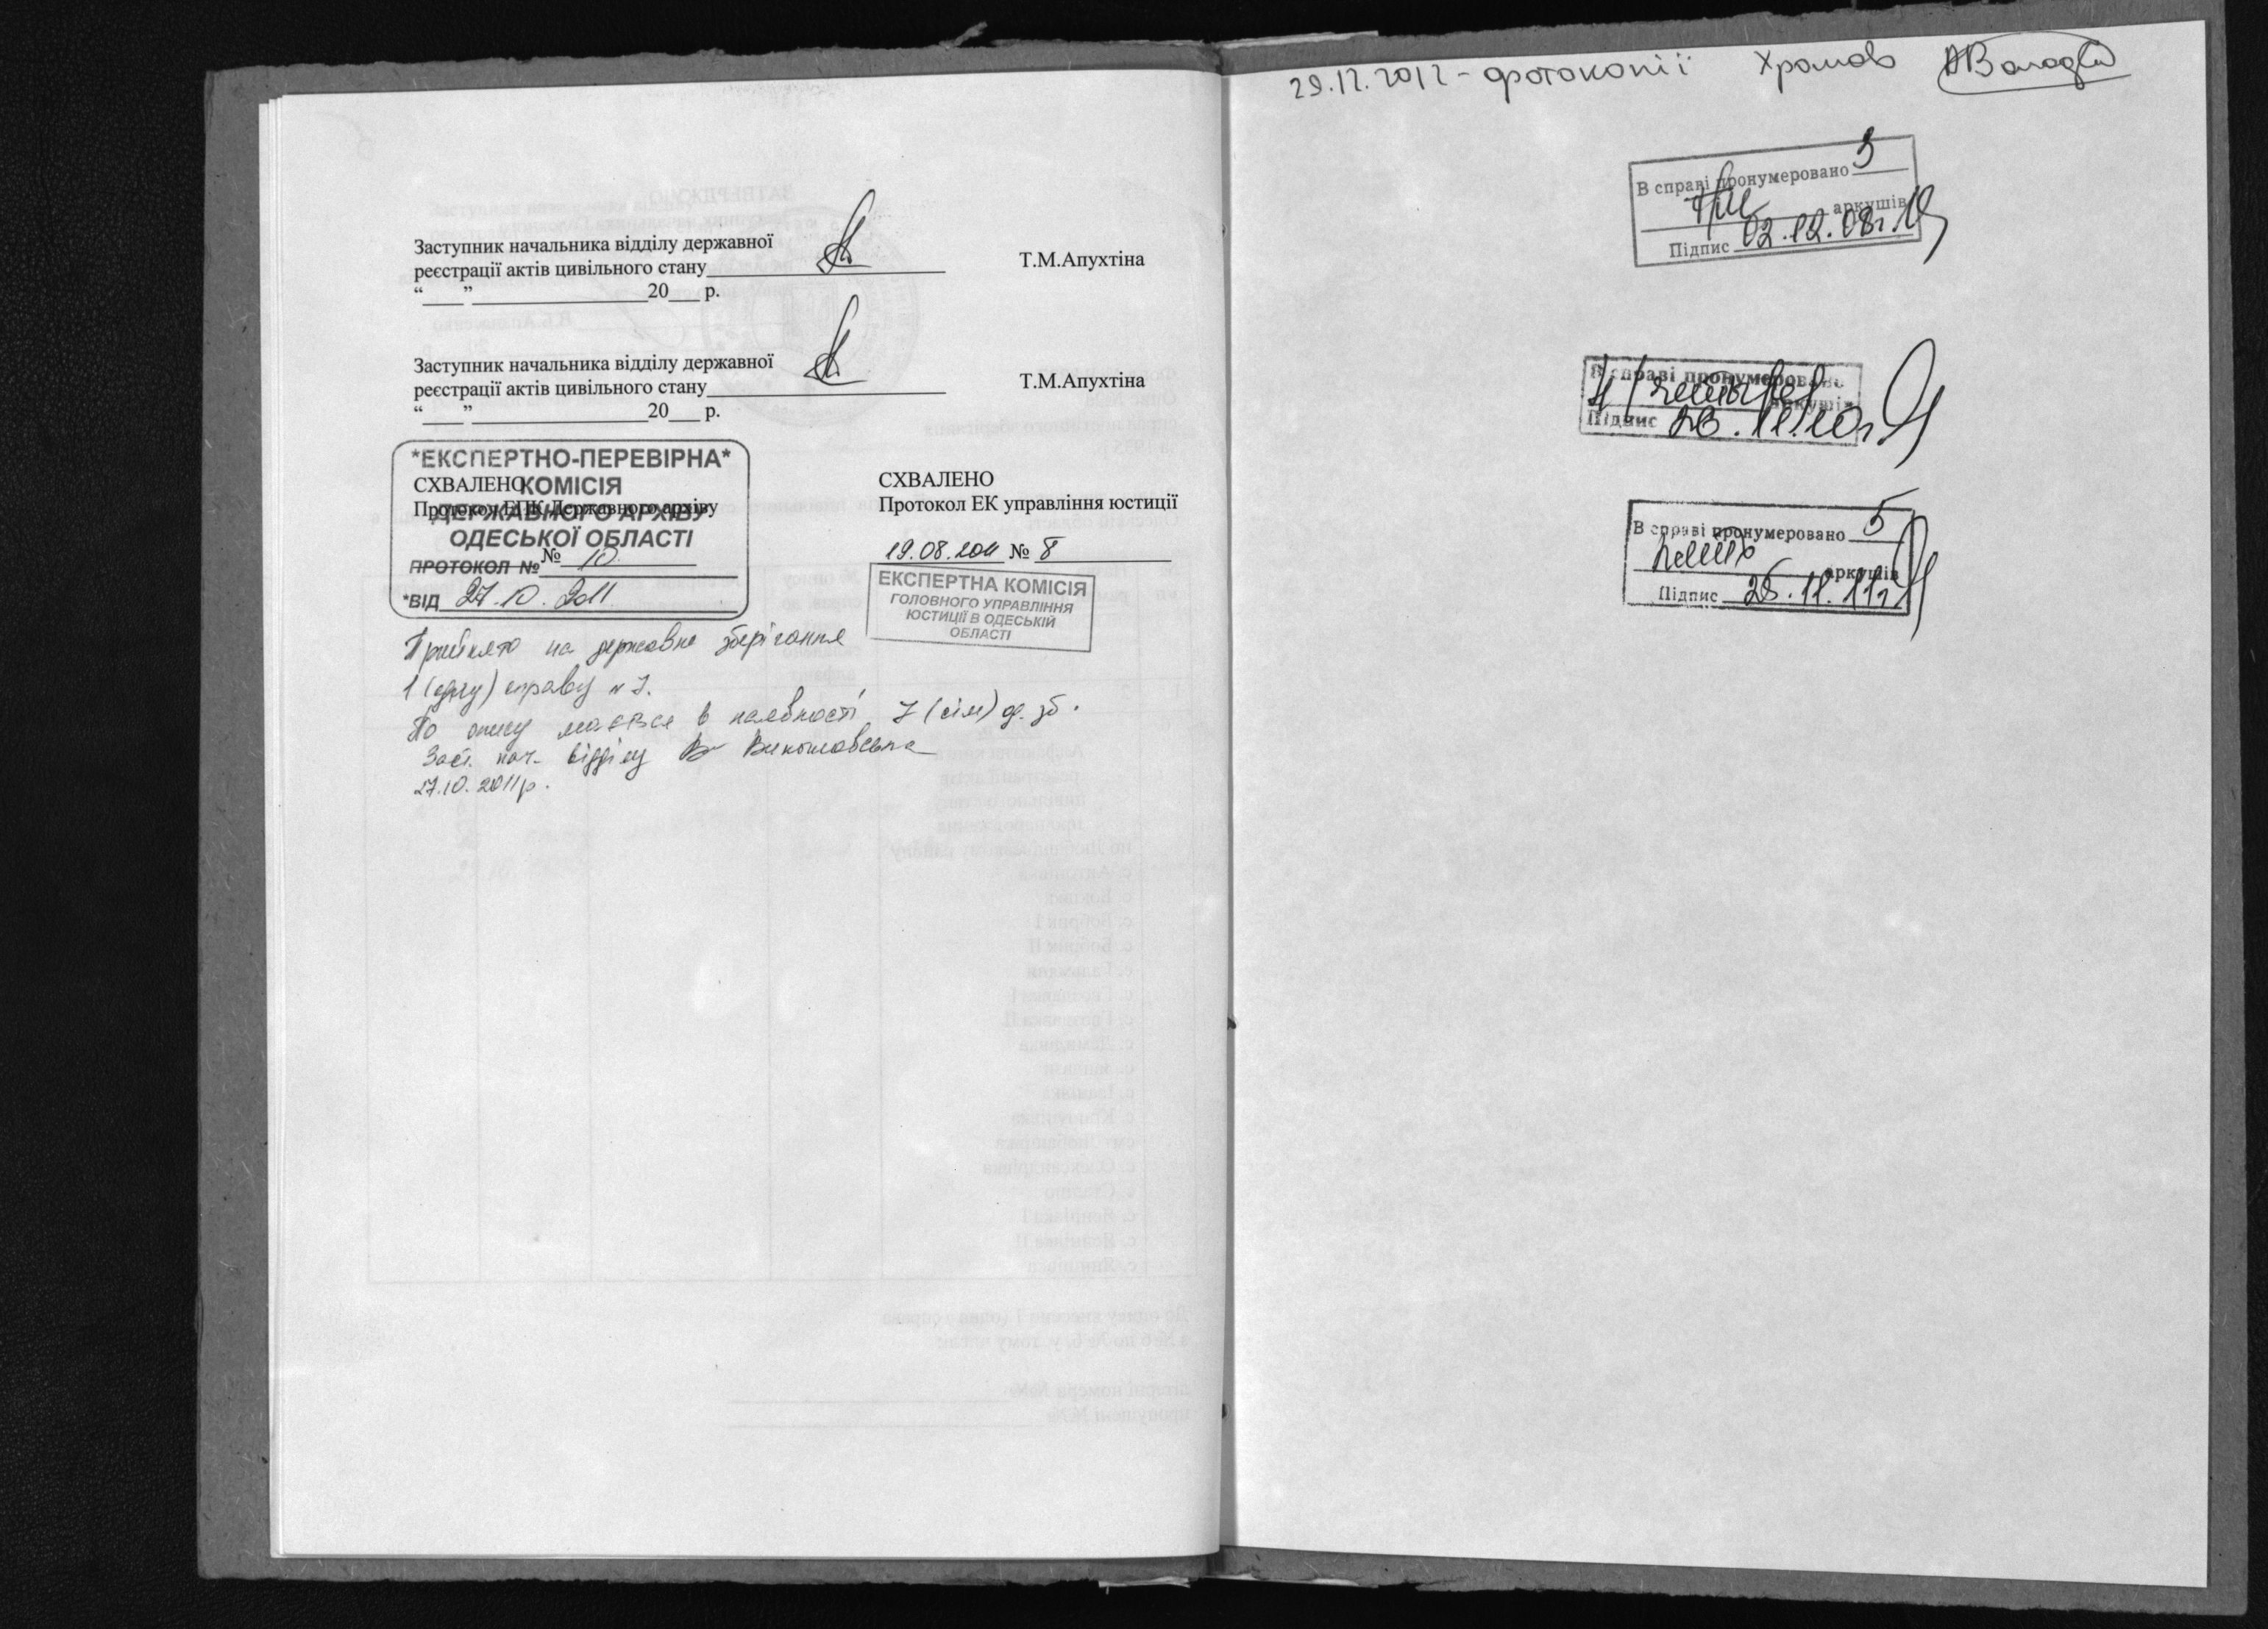 Заступник начальника відділу державної
реєстрації актів цивільного стану____________ Т.М.Апухтіна
“____”__________________20___ р.
Заступник начальника відділу державної
реєстрації актів цивільного стану____________ Т.М.Апухтіна
“____”__________________20___ р.
*ЕКСПЕРТНО-ПЕРЕВІРНА*
КОМІСІЯ
ДЕРЖАВНОГО АРХІВУ
ОДЕСЬКОЇ ОБЛАСТІ
ПРОТОКОЛ №
*ВІД 27.10.2011
СХВАЛЕНО
Протокол ЕПК Державного архіву
№ 10
СХВАЛЕНО
Протокол ЕК управління юстиції
19.08.2011 № 8
ЕКСПЕРТНА КОМІСІЯ
ГОЛОВНОГО УПРАВЛІННЯ
ЮСТИЦІЇ В ОДЕСЬКІЙ
ОБЛАСТІ
Прийнято на державне зберігання
1 (одну) справу № 7.
По опису мається в наявності 7 (сім) од. зб.
Заст. нач. відділу
27.10.2011р.
29.12.2012 - фотокопії Хромов
В справі пронумеровано 3
три аркушів
Підпис 02.12.08г.
В справі пронумеровано
4 (четыре) аркушів
Підпис 26.11.10г
В справі пронумеровано 5
пять аркушів
Підпис 25.11.11г